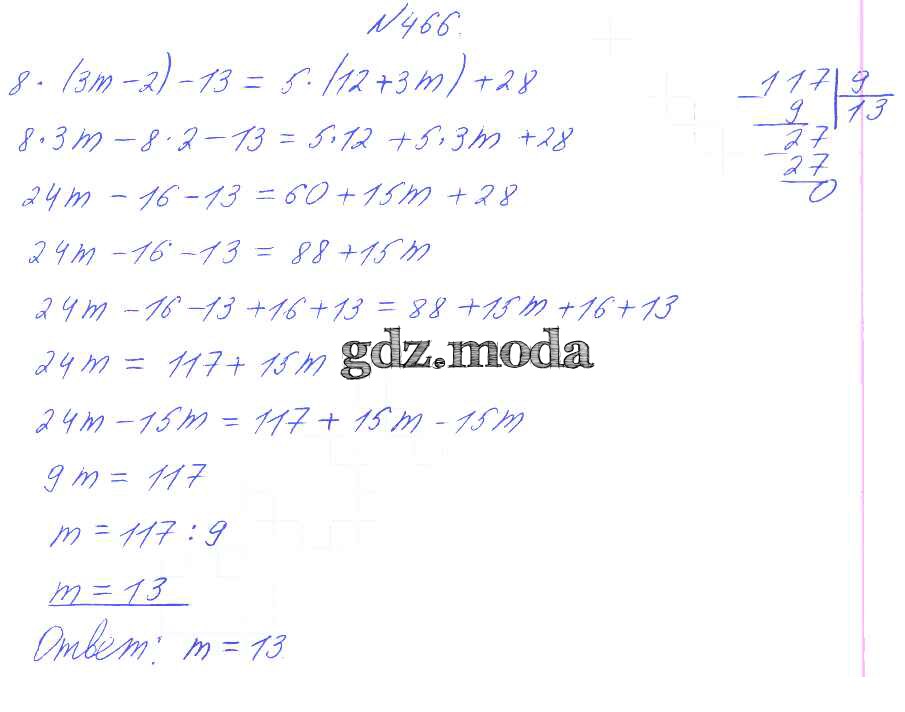 N466.
8 · (3m - 2) - 13 = 5 · (12 + 3m) + 28
8 · 3m - 8 · 2 - 13 = 5 · 12 + 5 · 3m + 28
24m - 16 - 13 = 60 + 15m + 28
24m - 16 - 13 = 88 + 15m
24m - 16 - 13 + 16 + 13 = 88 + 15m + 16 + 13
24m = 117 + 15m
gdz.moda
24m - 15m = 117 + 15m - 15m
9m = 117
m = 117 : 9
m = 13
Ответ: m = 13
117 | 9
9 | 13
27
27
0